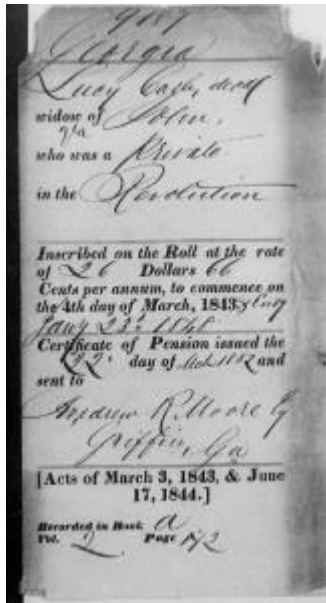 9187
Georgia
Lucy Cash, decd
widow of John,
Va
who was a Private
in the Revolution
Inscribed on the Roll at the rate
of 26 Dollars 66
Cents per annum, to commence on
the 4th day of March, 1843, &
Jany 23d 1848
Certificate of Pension issued the
22d day of 1852 and
sent to
Andrew R. Moore
Griffin, Ga
[Acts of March 3, 1843, & June
17, 1844.]
Recorded in Book A
Vol. 2 Page 172